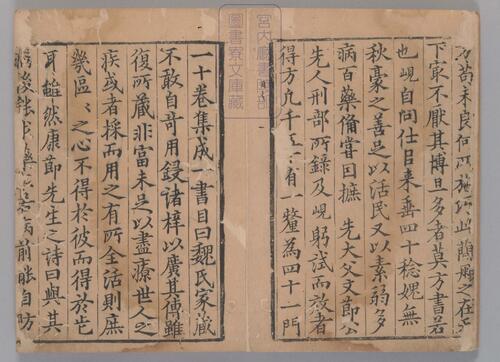 苟未良何所施巧此
下㝡不厭其博且多者莫方書若
也峴自問仕日来垂四十稔媿無
秋豪之善足以活民又以素弱多
病百藥俻嘗曰摭 先大父文節公
先人刑部所錄及峴躬試而效者
得方凡千五 有一釐為四十一門
宮内廳書
圖書寮文庫藏
一十卷集成一書目曰魏氏家藏
不敢自竒用鋟諸梓以廣其傳雖
復所藏非富未足以盡療世人之
疾或者採而用之有所全活則庶
幾區〻之心不得於彼而得於此
耳雖然康節先生之詩曰與其
病後能 藥 若病前能自防